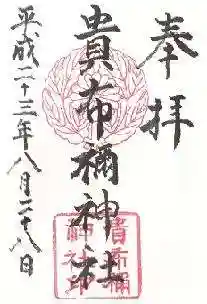 奉拝
貴布禰神社
平成二十三年八月二十八日
貴布禰
神社印